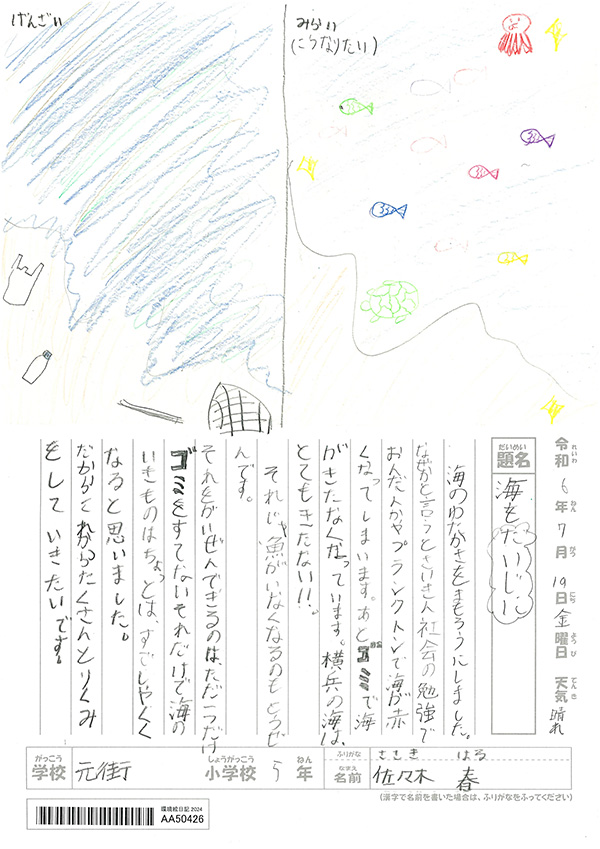 げんざい
みらい
(こうなりたい)
令和6年7月19日金曜日 天気 晴れ
れいわ ねん がつ にち ようび てんき
だいめい
題名
海をだいじに
海のゆたかさをまもろうにしました。
なぜかと言うとさいきん社会の勉強で
おんだんかやプランクトンで海が赤
くなってしまいます。あとゴミで海
がきたなくなっています。横兵の海は、
とてもきたない!!。
それじゃ魚がいなくなるのもとうぜ
んです。
それをかいぜんできるのは、ただ一つだけ
ゴミをすてないそれだけで海の
いきものはちょっとは、すごしやくく
なると思いました。
だからこれからたくさんとりくみ
をしていきたいです。
がっこう
学校
元街
しょうがっこう
小学校
5
ねん
年
ふりがな
ささき はる
なまえ
名前
佐々木 春
(漢字で名前を書いた場合は、ふりがなをふってください)
環境絵日記2024
AA50426